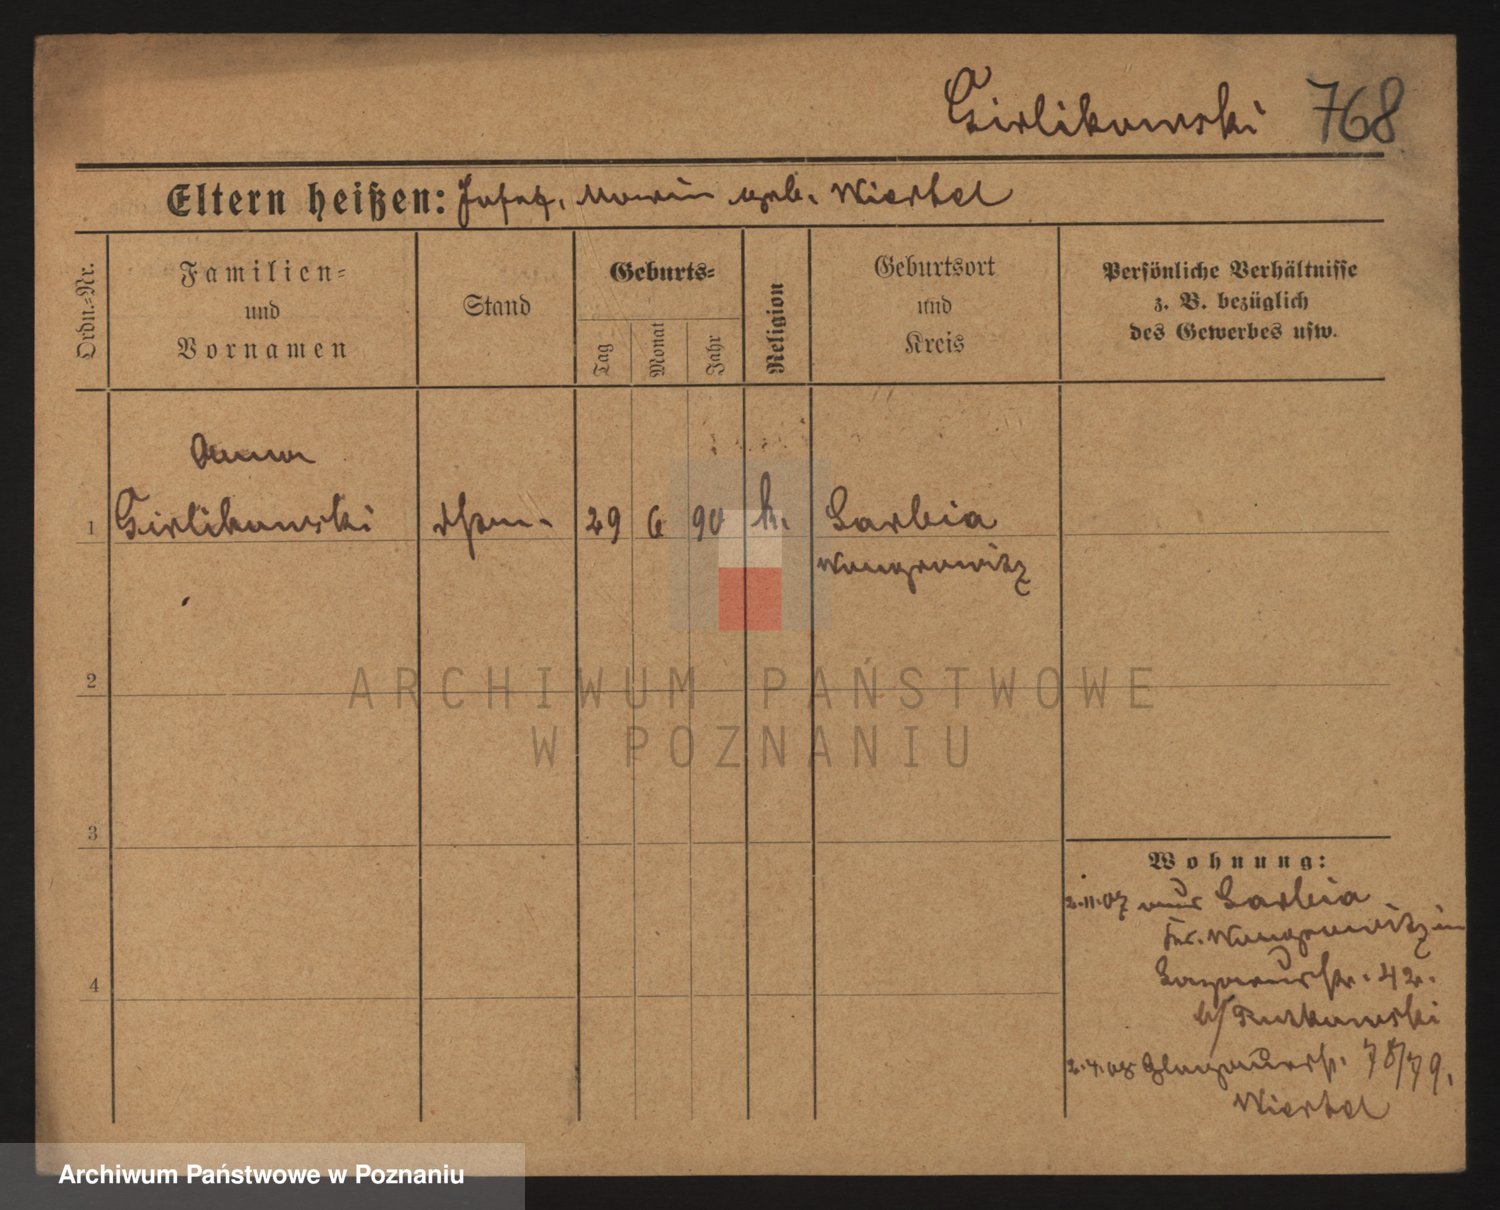 Girlikowski 768
Eltern heißen: Josef, Maria geb. Wiertel
Ordn.-Nr.
Familien-
und
Vornamen
Stand
Geburts-
Tag
Monat
Jahr
Religion
Geburtsort
und
Kreis
Persönliche Verhältnisse
z. B. bezüglich
des Gewerbes usw.
Anna
1 Girlikowski 29 6 90 k. Sarbia
Wongrowitz
2
3
4
Wohnung:
2.11.07 aus Sarbia
Kr. Wongrowitz in
Lazarusstr. 42.
b/ Rutkowski
2.4.08 Glogauerstr. 78/79.
Wiertel
ARCHIWUM PAŃSTWOWE
W POZNANIU
Archiwum Państwowe w Poznaniu